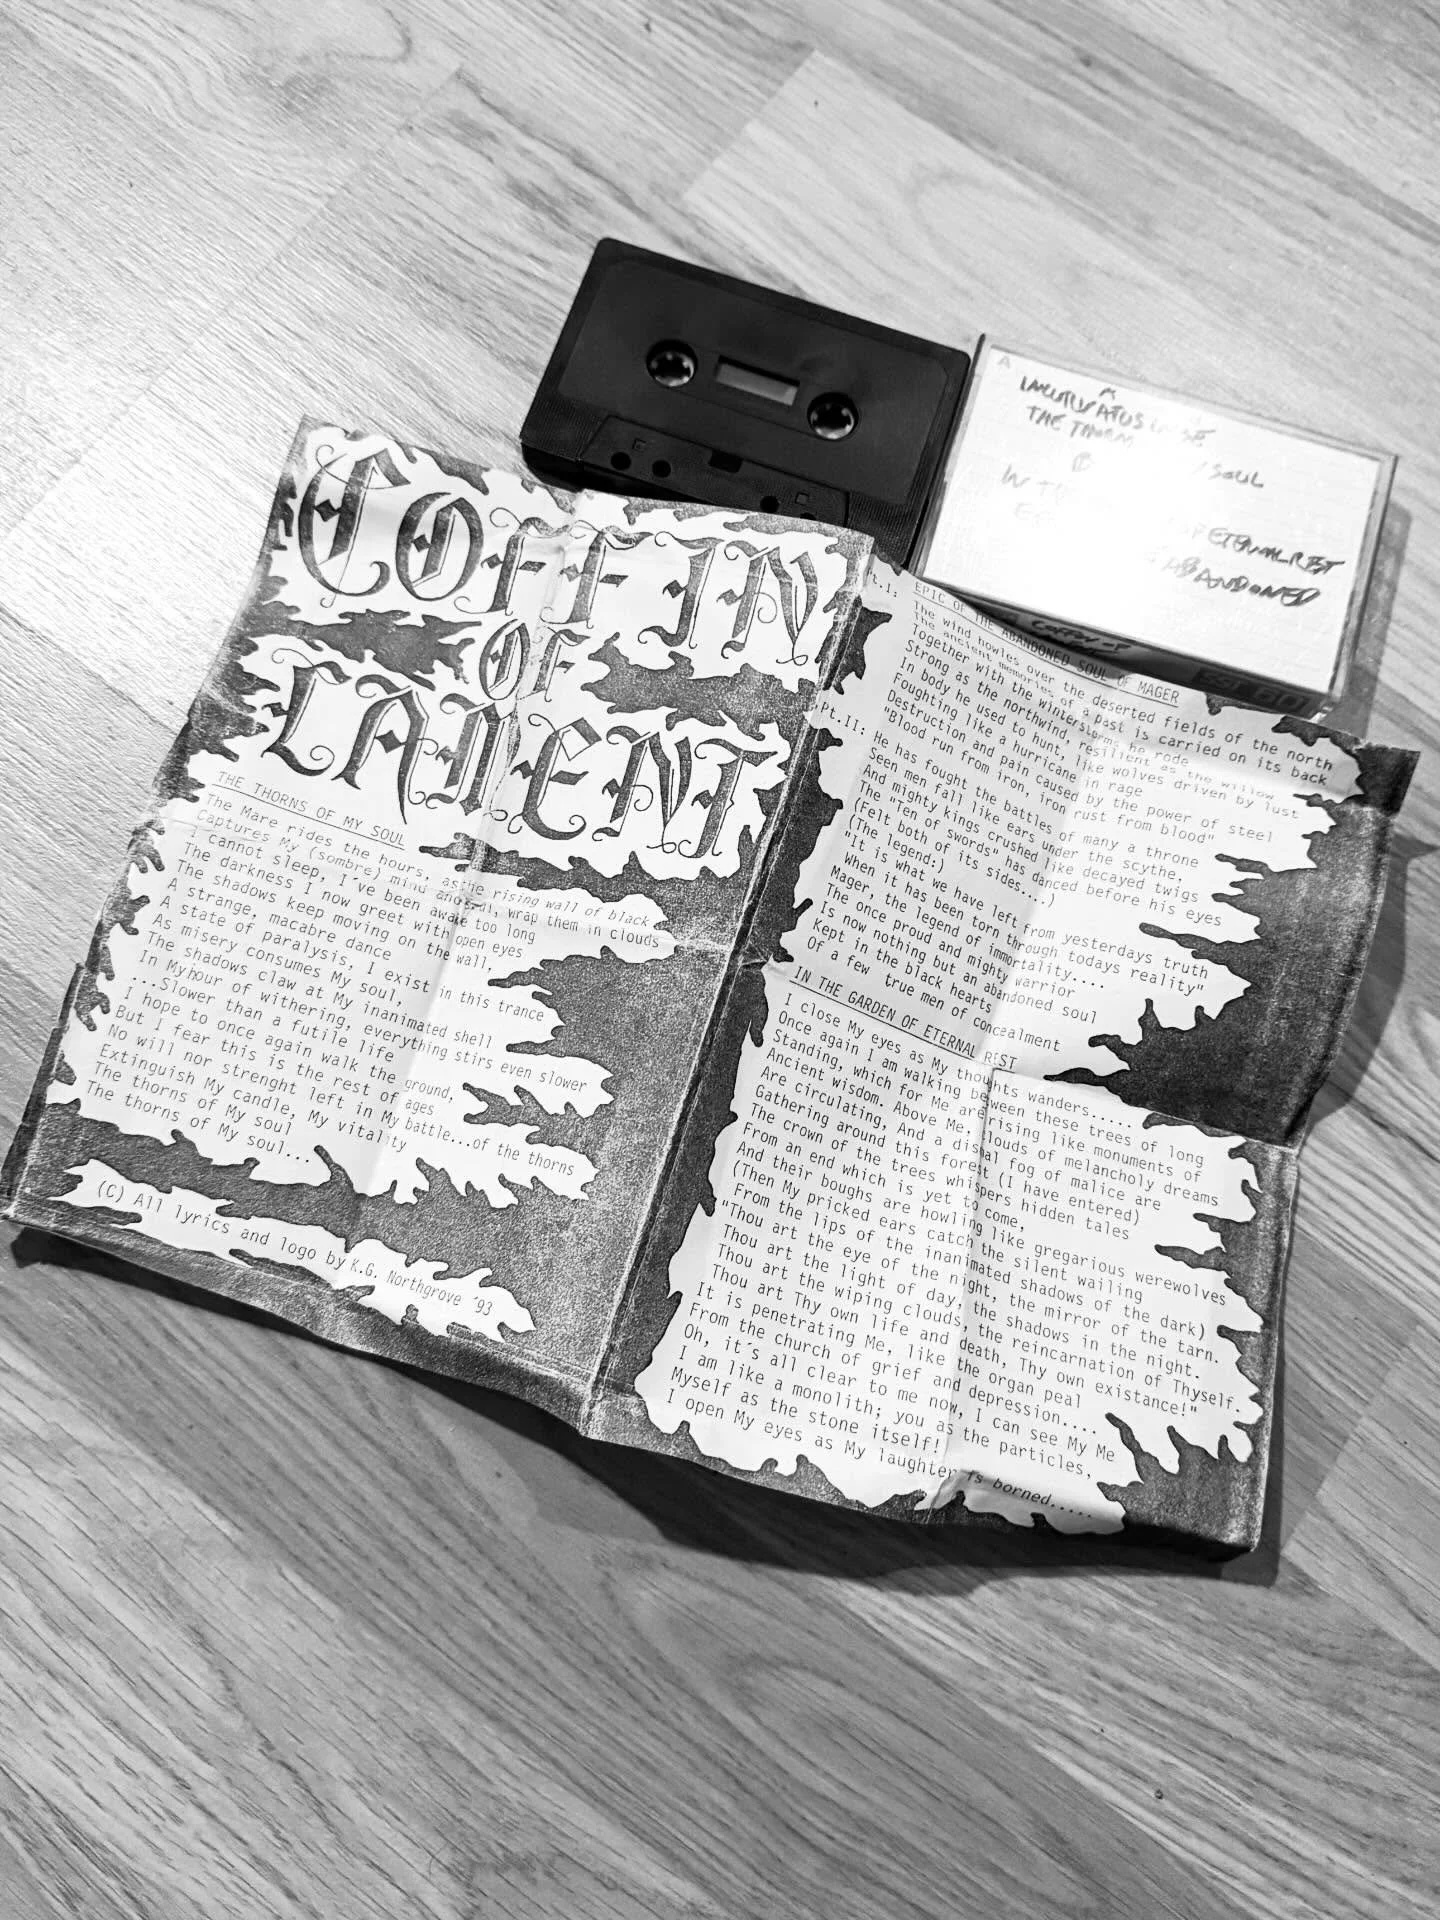 COFFIN
OF
LAMENT
THE THORNS OF MY SOUL
The Mare rides the hours, as the rising wall of black
Captures My (sombre) mind and soul, wrap them in clouds
I cannot sleep, I've been awake too long
The darkness I now greet with open eyes
The shadows keep moving on the wall,
A strange, macabre dance
A state of paralysis, I exist in this trance
As misery consumes My soul,
The shadows claw at My inanimated shell
In My hour of withering, everything stirs even slower
....Slower than a futile life
I hope to once again walk the ground,
But I fear this is the rest of ages
No will nor strenght left in My battle...of the thorns
Extinguish My candle, My vitality
The thorns of My soul
The thorns of My soul...
(C) All lyrics and logo by K.G. Northgrove '93
EPIC OF THE ABANDONED SOUL OF MAGER
Pt.I: The wind howles over the deserted fields of the north
The ancient memories of a past is carried on its back
Together with the winterstorms he rode
Strong as the northwind, resilient as the willow
In body he used to hunt, like wolves driven by lust
Fought like a hurricane in rage
Destruction and pain caused by the power of steel
"Blood run from iron, iron rust from blood"
Pt.II: He has fought the battles of many a throne
Seen men fall like ears under the scythe,
And mighty kings crushed like decayed twigs
The "Ten of swords" has danced before his eyes
(Felt both of its sides....)
(The legend:)
"It is what we have left from yesterdays truth
When it has been torn through todays reality"
Mager, the legend of immortality....
The once proud and mighty warrior
Is now nothing but an abandoned soul
Kept in the black hearts
Of a few true men of concealment
IN THE GARDEN OF ETERNAL REST
I close My eyes as My thoughts wanders.....
Once again I am walking between these trees of long
Standing, which for Me are rising like monuments of
Ancient wisdom. Above Me, clouds of melancholy dreams
Are circulating, And a dismal fog of malice are
Gathering around this forest (I have entered)
The crown of the trees whispers hidden tales
From an end which is yet to come,
And their boughs are howling like gregarious werewolves
(Then My pricked ears catch the silent wailing
From the lips of the inanimated shadows of the dark)
"Thou art the eye of the night, the mirror of the tarn.
Thou art the light of day, the shadows in the night.
Thou art the wiping clouds, the reincarnation of Thyself.
Thou art Thy own life and death, Thy own existance!"
It is penetrating Me, like the organ peal
From the church of grief and depression....
Oh, it's all clear to me now, I can see My Me
I am like a monolith; you as the particles,
Myself as the stone itself!
I open My eyes as My laughter is borned.....
A
A
THE THORN
SOUL
B
IN
ETERNAL REST
ABANDONED